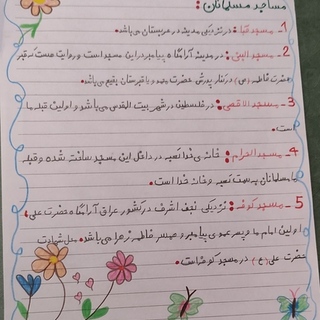 مساجد مسلمانان:
1_ مسجد قبا: در نزدیکی مدینه در عربستان می‌باشد.
2_ مسجد النبی: در مدینه آرامگاه پیامبر در این مسجد است و روایت هست که قبر
حضرت فاطمه (س) در کنار پدرش حضرت محمد و یا قبرستان بقیع می‌باشد.
3_ مسجد الاقصی: در فلسطین در شهر بیت المقدس می‌باشد و اولین قبله ما
است.
4_ مسجد الحرام: خانه ی خدا کعبه در داخل این مسجد ساخته شده و قبله
ما مسلمانان به سمت کعبه و خانه خدا است.
5_ مسجد کوفه: نزدیکی نجف اشرف در کشور عراق آرامگاه حضرت علی،
اولین امام ما و پسر عموی پیامبر و همسر فاطمه زهرا می‌باشد. محل شهادت
حضرت علی (ع) در مسجد کوفه است.